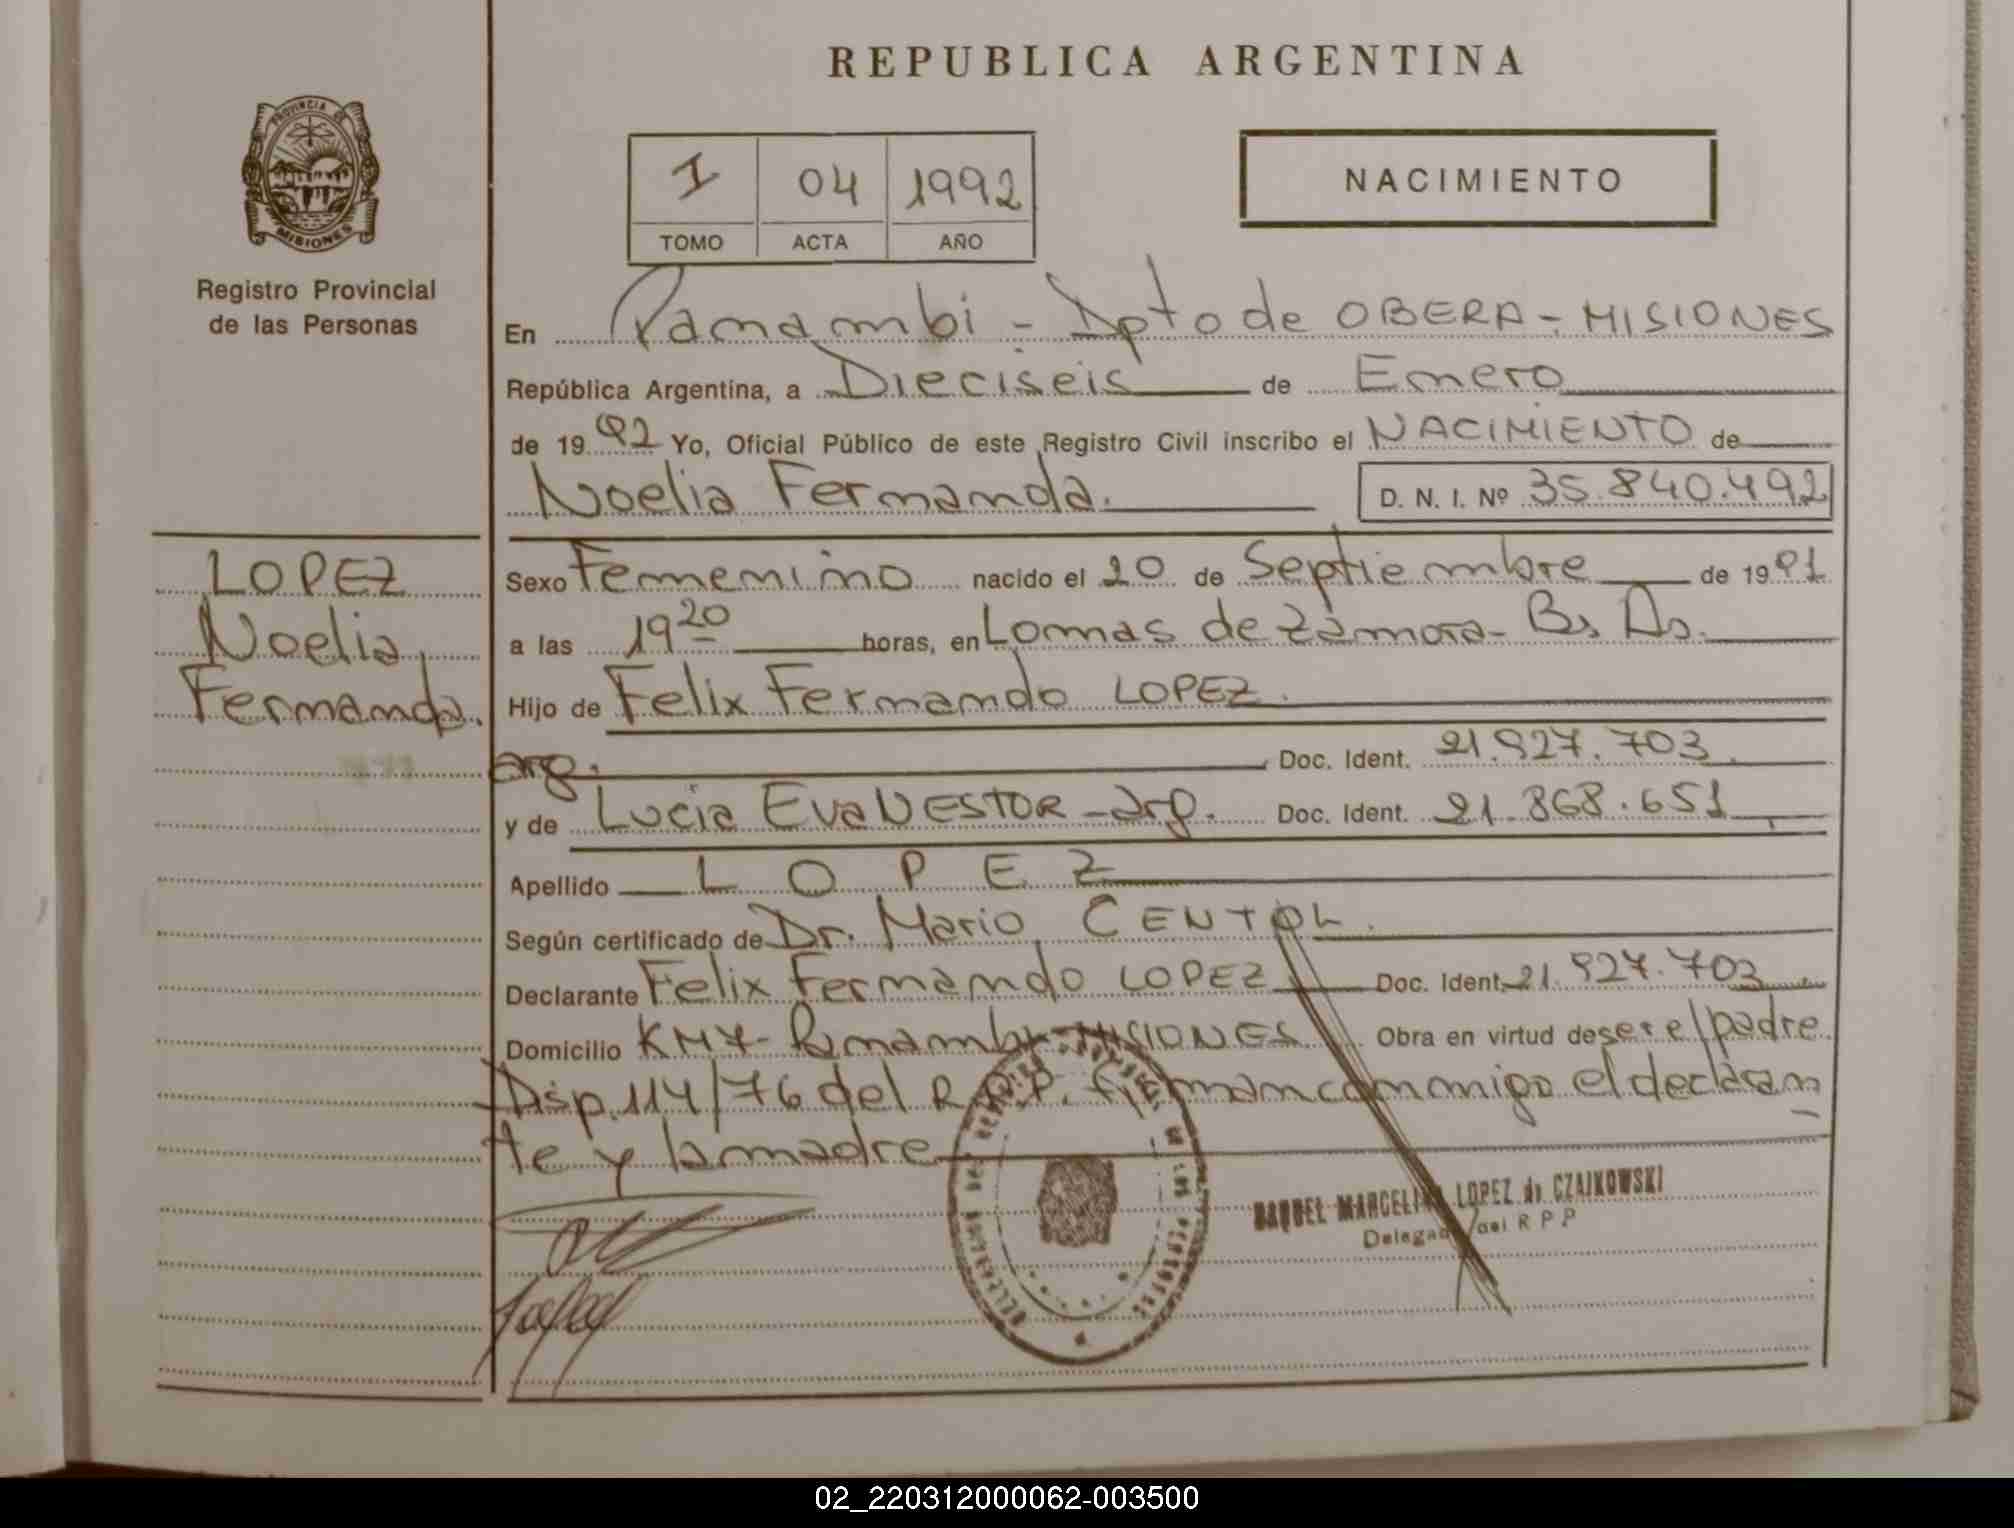 REPUBLICA ARGENTINA
PROVINCIA DE
MISIONES
Registro Provincial
de las Personas
I 04 1992
TOMO ACTA AÑO
NACIMIENTO
En Panambi - Dpto de OBERA - MISIONES
República Argentina, a Dieciseis de Enero
de 1992 Yo, Oficial Público de este Registro Civil inscribo el NACIMIENTO de
Noelia Fernanda. D. N. I. Nº 35.840.492
LOPEZ
Noelia
Fernanda.
Sexo Femenino nacido el 20 de Septiembre de 1991
a las 19 20 horas, en Lomas de Zamora - Bs As.
Hijo de Felix Fernando LOPEZ.
arg. Doc. Ident. 21.927.703
y de Lucia Eva NESTOR - arg. Doc. Ident. 21.868.651
Apellido LOPEZ
Según certificado de Dr. Mario CENTOL.
Declarante Felix Fernando LOPEZ Doc. Ident. 21.927.703
Domicilio KM 7 - Panambi - MISIONES Obra en virtud de ser el padre
Disp. 114/76 del R.P.P. firman conmigo el declaran
te y la madre
RAQUEL MARCELINA LOPEZ de CZAJKOWSKI
Delegada del R P P
02_220312000062-003500